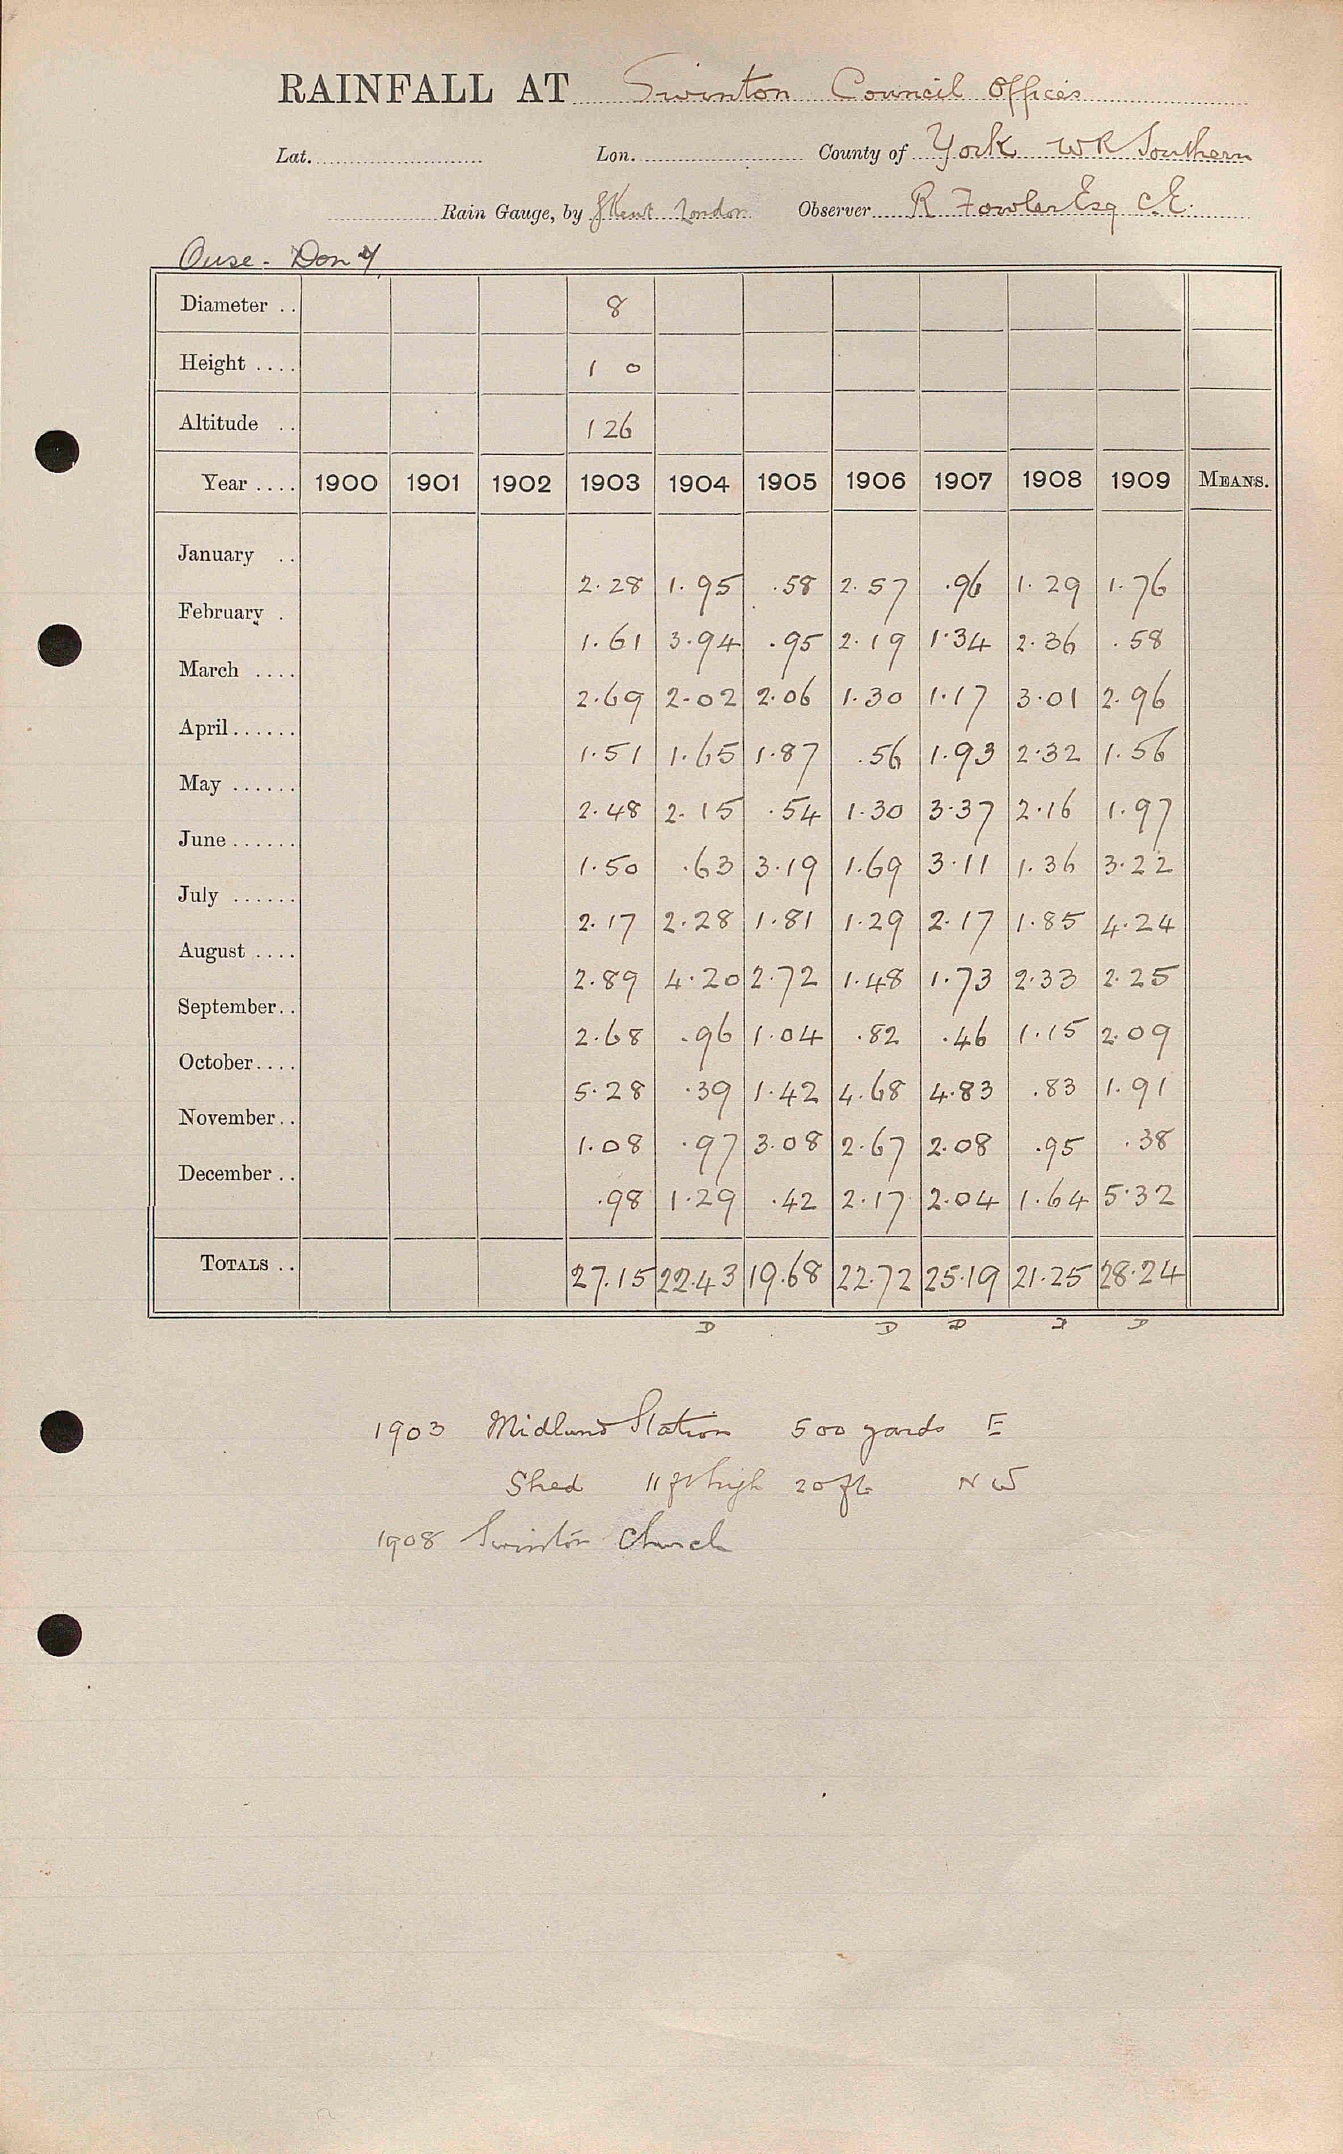 RAINFALL AT Swinton Council Offices
Lat. Lon. County of York WR Southern
Rain Gauge, by J Kent London Observer R Fowler Esq C.E.
Ouse - Don 4
Diameter .. 8
Height .... 1 0
Altitude .. 126
Year .... 1900 1901 1902 1903 1904 1905 1906 1907 1908 1909 MEANS.
January .. 2.28 1.95 .58 2.57 .96 1.29 1.76
February . 1.61 3.94 .95 2.19 1.34 2.36 .58
March .... 2.69 2.02 2.06 1.30 1.17 3.01 2.96
April...... 1.51 1.65 1.87 .56 1.93 2.32 1.56
May ...... 2.48 2.15 .54 1.30 3.37 2.16 1.97
June...... 1.50 .63 3.19 1.69 3.11 1.36 3.22
July ...... 2.17 2.28 1.81 1.29 2.17 1.85 4.24
August .... 2.89 4.20 2.72 1.48 1.73 2.33 2.25
September.. 2.68 .96 1.04 .82 .46 1.15 2.09
October.... 5.28 .39 1.42 4.68 4.83 .83 1.91
November.. 1.08 .97 3.08 2.67 2.08 .95 .38
December .. .98 1.29 .42 2.17 2.04 1.64 5.32
TOTALS .. 27.15 22.43 19.68 22.72 25.19 21.25 28.24
D D D D D
1903 Midland Station 500 yards E
Shed 11 ft high 20 ft NW
1908 Swinton Church